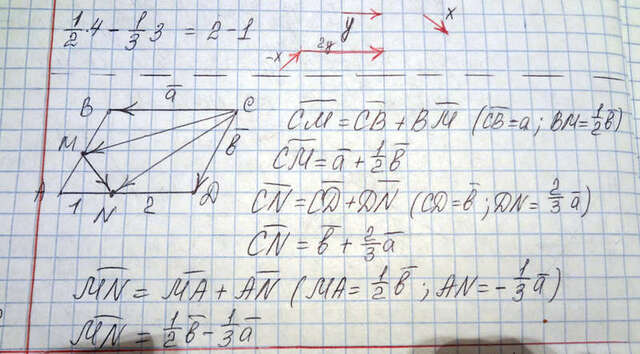 1/2·4 − 1/3 3 = 2 − 1
y
x
−x
2y
a̅
B
C
M
b̅
A
1
N
2
D
C̅M̅ = C̅B̅ + B̅M̅ (C̅B̅ = a ; BM = 1/2 b̅)
C̅M̅ = a̅ + 1/2 b̅
C̅N̅ = C̅D̅ + D̅N̅ (CD = b̅ ; DN = 2/3 a̅)
C̅N̅ = b̅ + 2/3 a̅
M̅N̅ = M̅A̅ + A̅N̅ (MA = 1/2 b̅ ; AN = −1/3 a̅)
M̅N̅ = 1/2 b̅ − 1/3 a̅